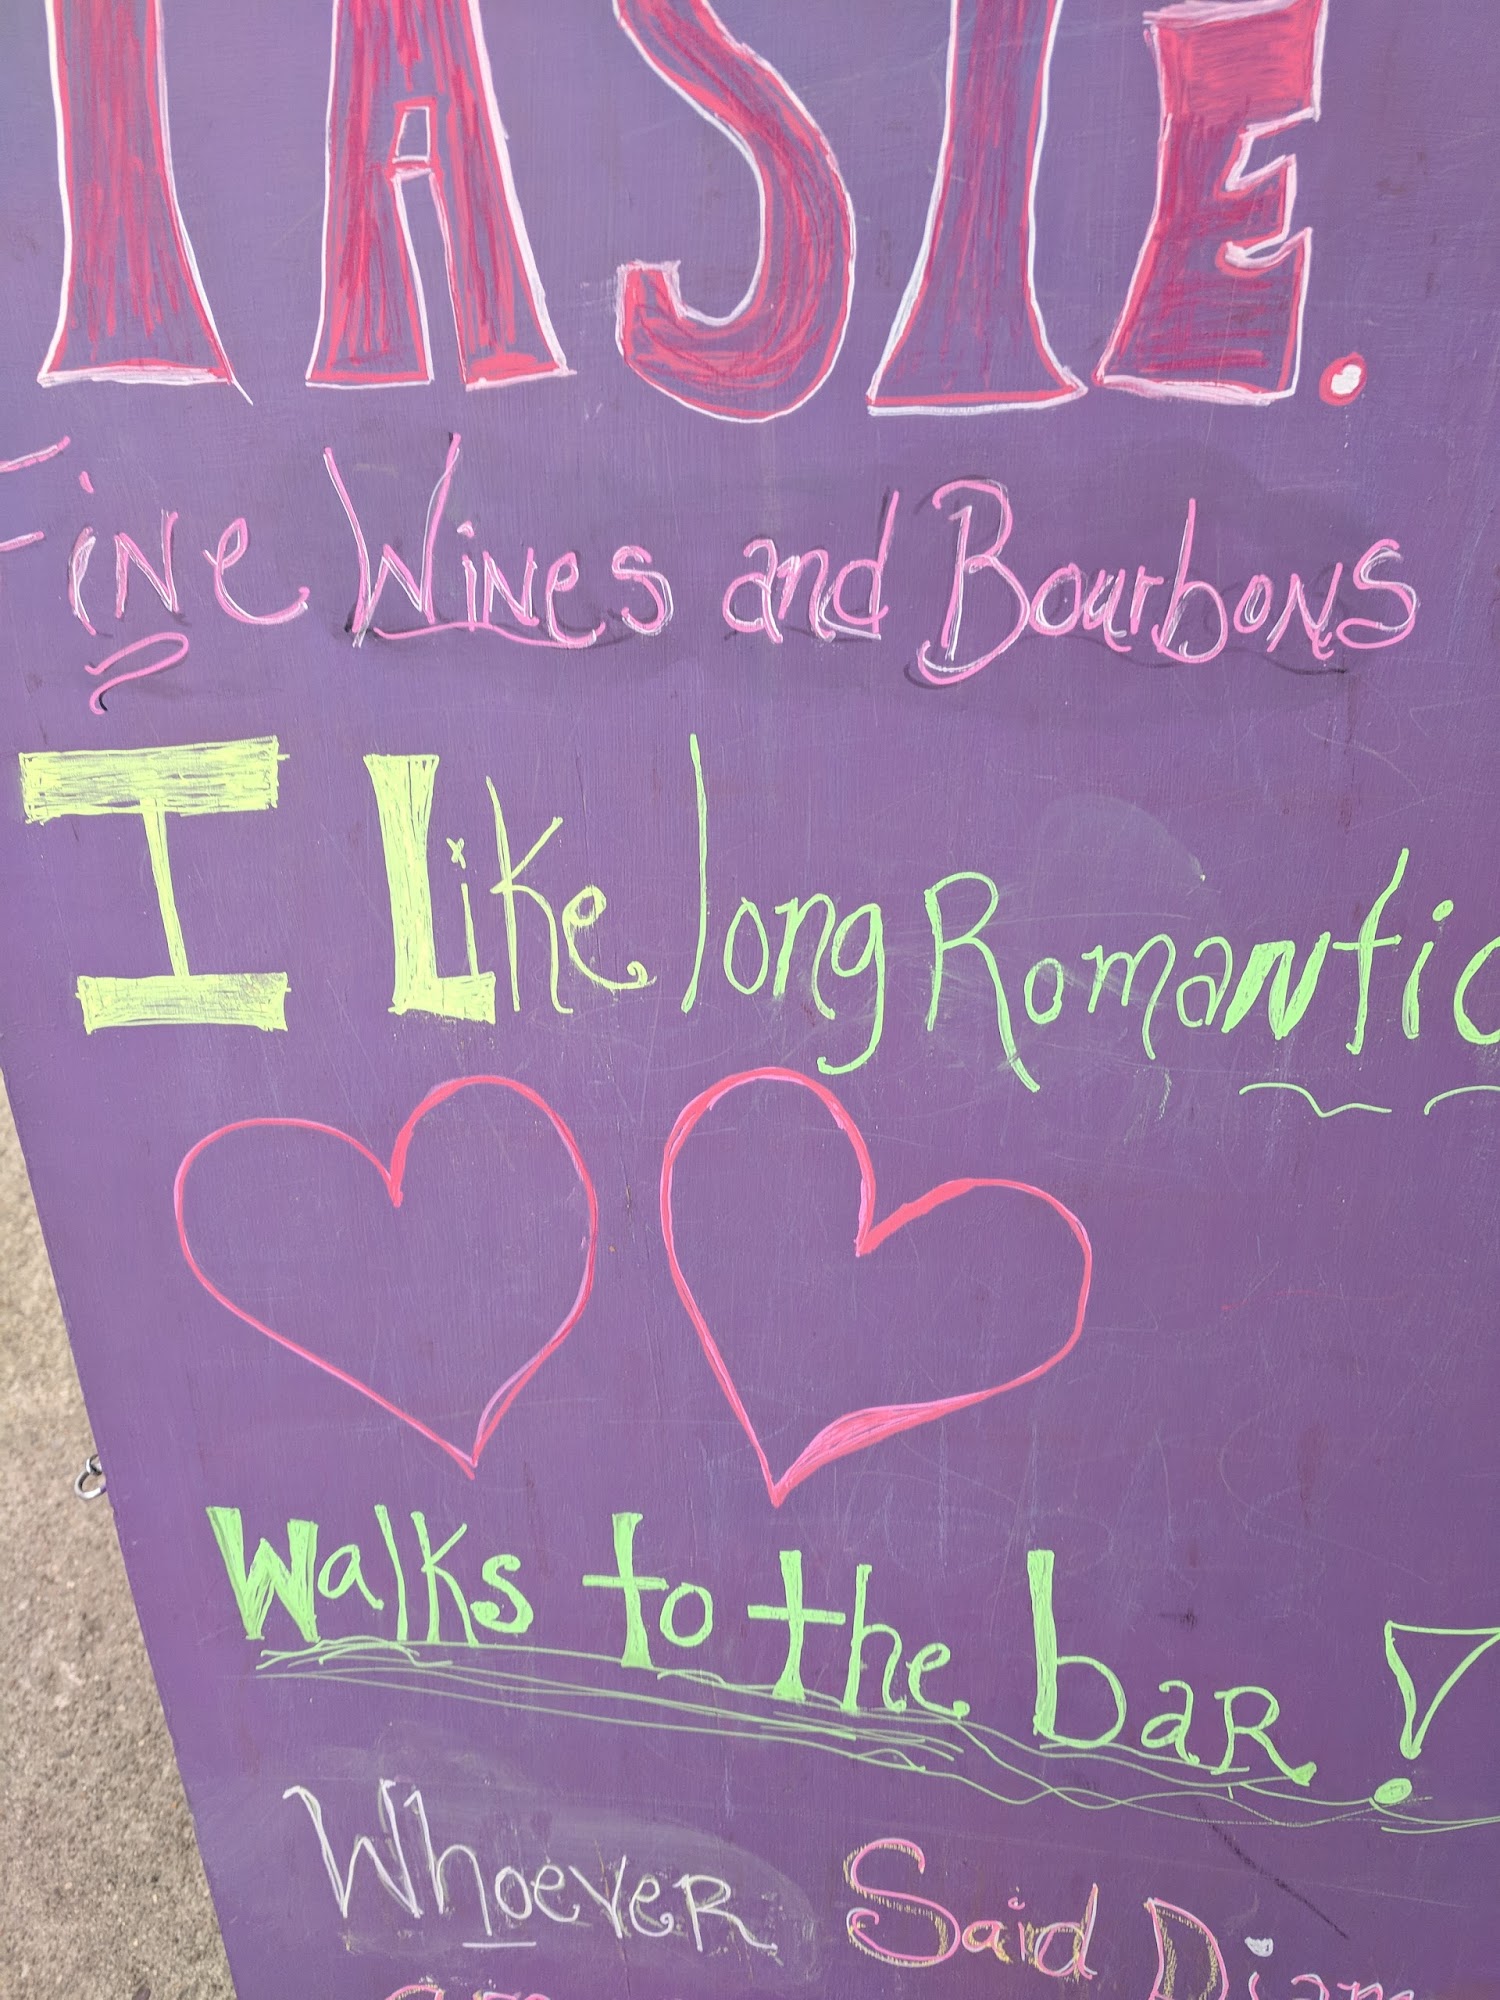 TASTE.
Fine Wines and Bourbons
I Like long Romantic
Walks to the bar!
Whoever Said